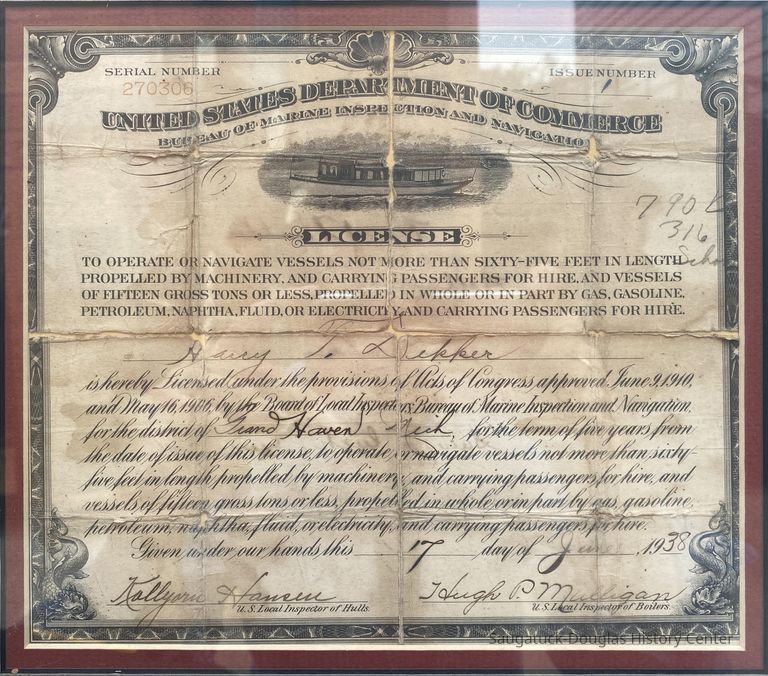 SERIAL NUMBER
270306
ISSUE NUMBER
1
UNITED STATES DEPARTMENT OF COMMERCE
BUREAU OF MARINE INSPECTION AND NAVIGATION
790
316
LICENSE
TO OPERATE OR NAVIGATE VESSELS NOT MORE THAN SIXTY-FIVE FEET IN LENGTH
PROPELLED BY MACHINERY, AND CARRYING PASSENGERS FOR HIRE, AND VESSELS
OF FIFTEEN GROSS TONS OR LESS, PROPELLED IN WHOLE OR IN PART BY GAS, GASOLINE,
PETROLEUM, NAPHTHA, FLUID, OR ELECTRICITY, AND CARRYING PASSENGERS FOR HIRE.
is hereby Licensed under the provisions of Acts of Congress approved June 9, 1910,
and May 16, 1906, by the Board of Local Inspectors Bureau of Marine Inspection and Navigation,
for the district of Grand Haven Mich. for the term of five years from
the date of issue of this license, to operate or navigate vessels not more than sixty-
five feet in length propelled by machinery, and carrying passengers for hire, and
vessels of fifteen gross tons or less, propelled in whole or in part by gas, gasoline,
petroleum, naphtha, fluid, or electricity, and carrying passengers for hire.
Given under our hands this 17 day of June, 1938
Hansen
Hugh P. Mulligan
U.S. Local Inspector of Hulls.
U.S. Local Inspector of Boilers.
Saugatuck-Douglas History Center